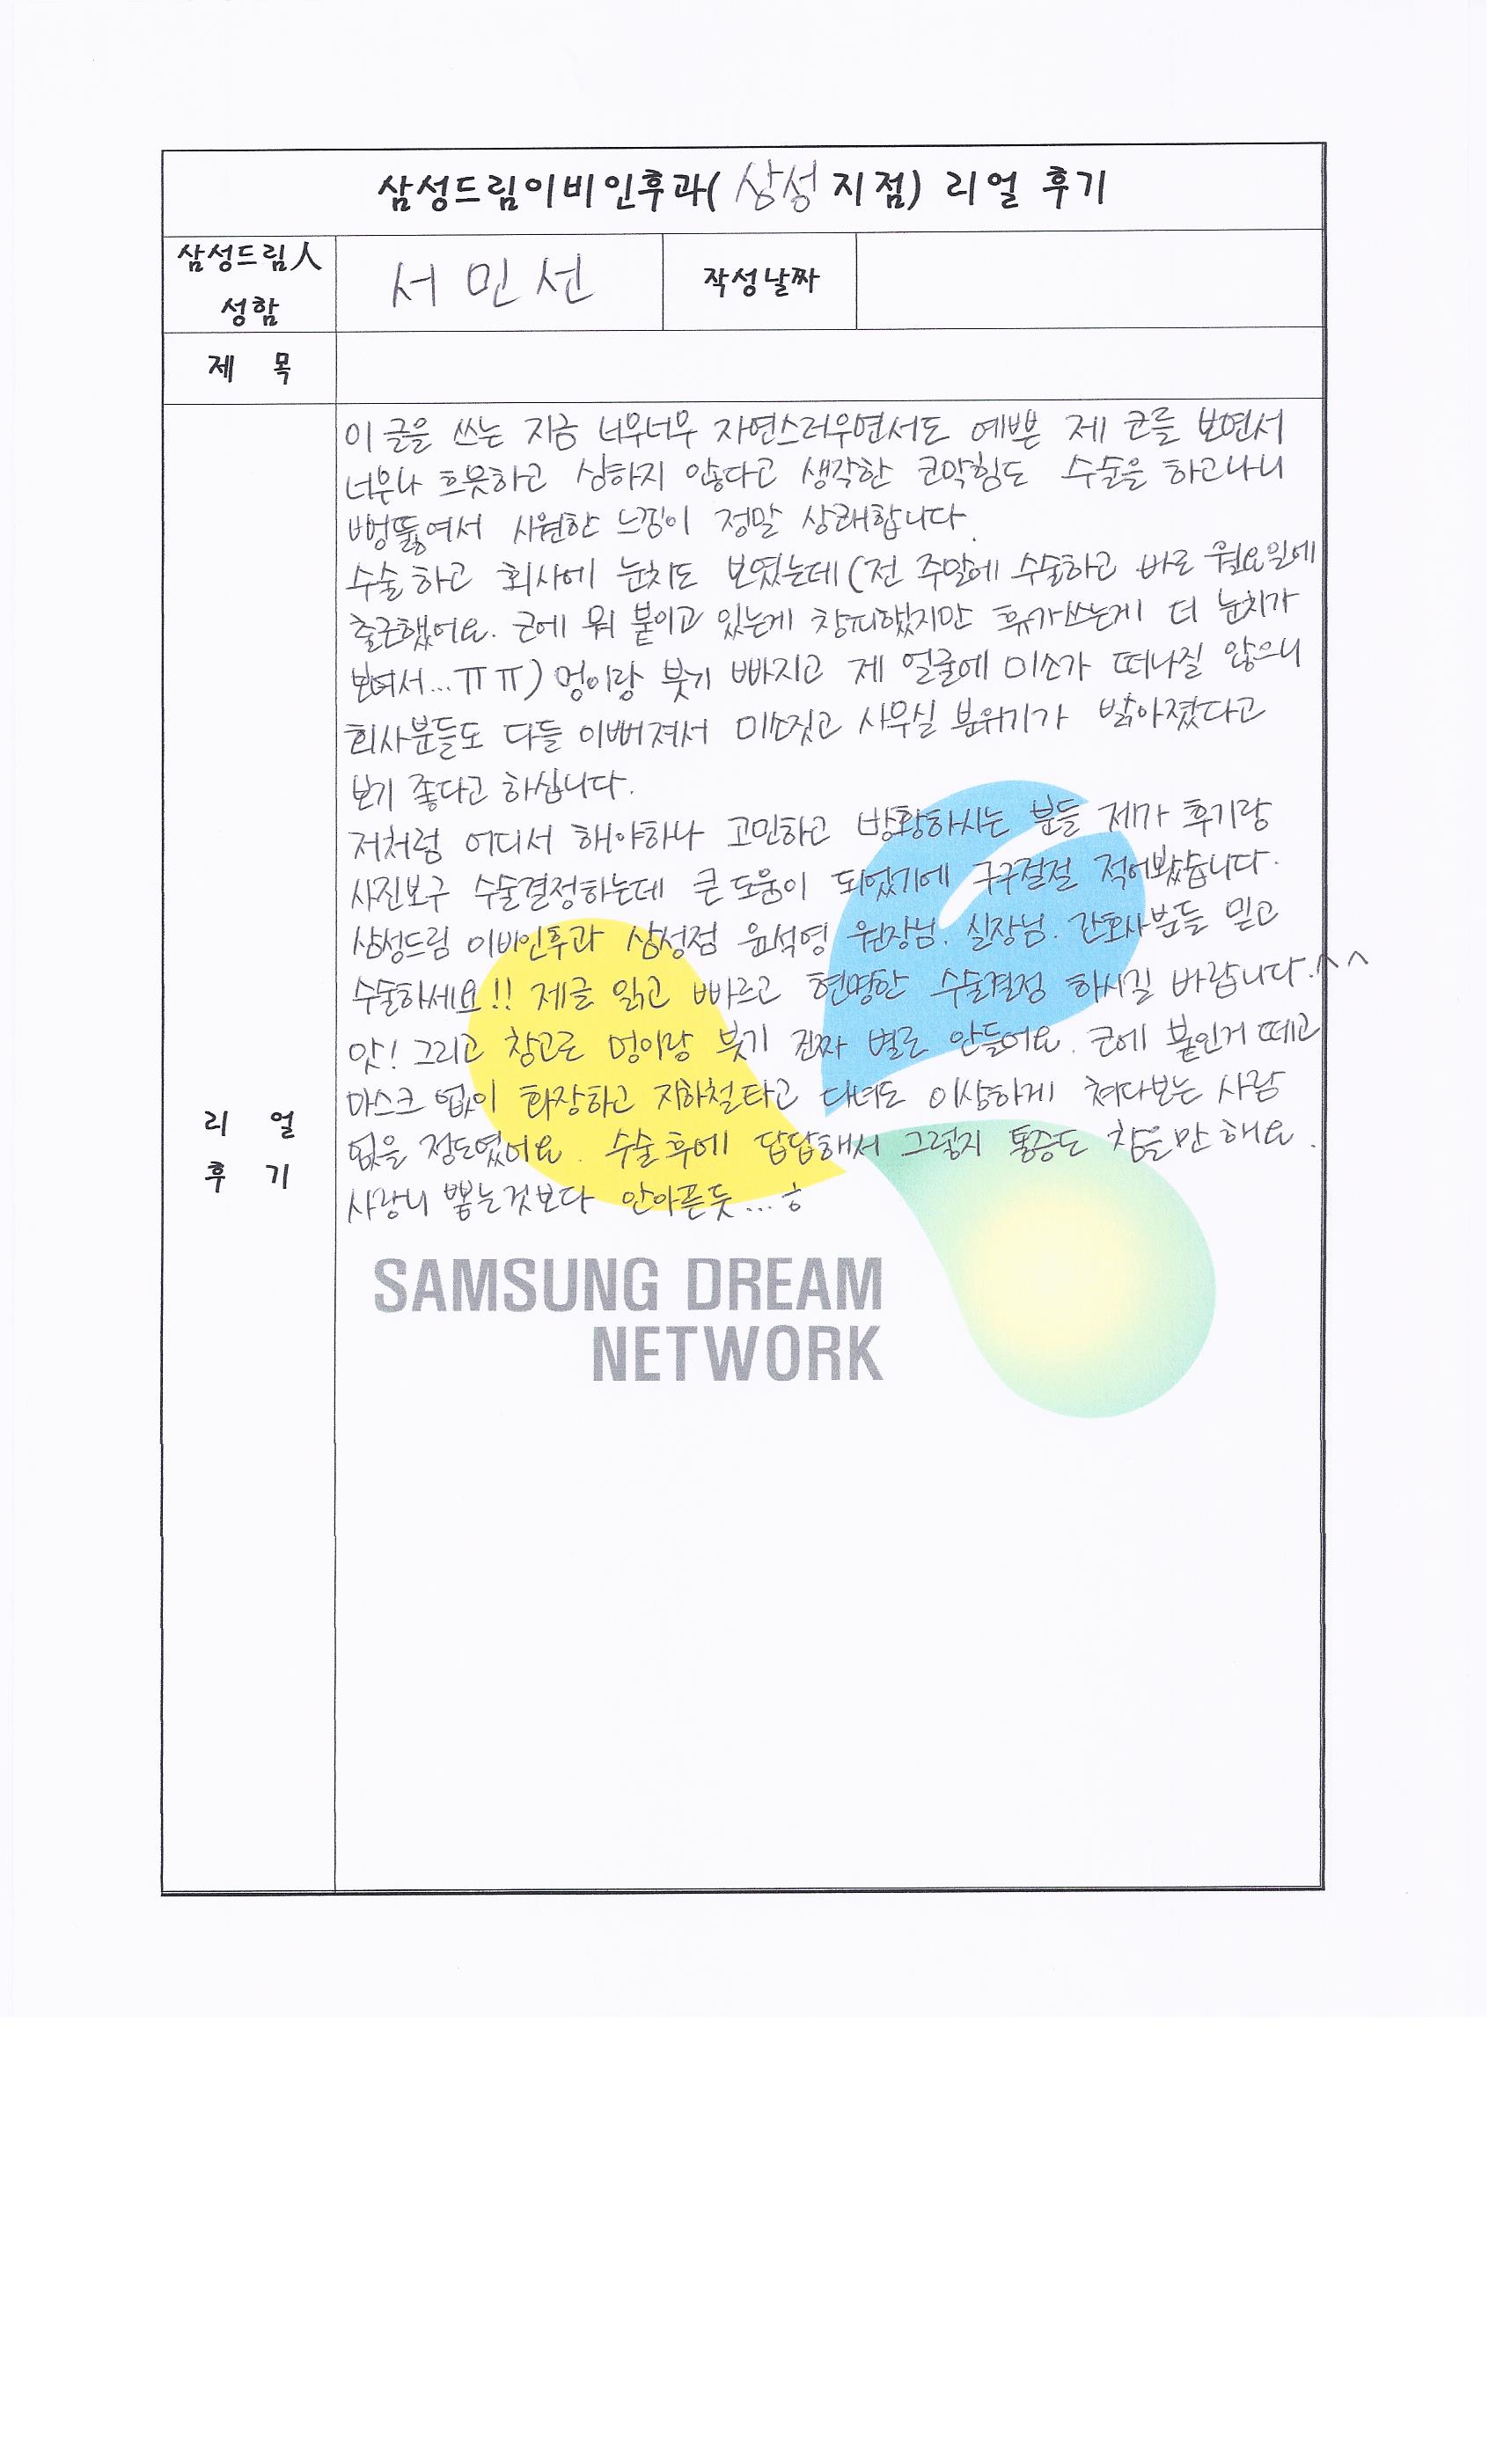 삼성드림이비인후과( 삼성 지점) 리얼 후기
삼성드림人
성함
서민선
작성날짜
제 목
이 글을 쓰는 지금 너무너무 자연스러우면서도 예쁜 제 코를 보면서
너무나 흐뭇하고 심하지 않다고 생각한 코막힘도 수술을 하고나니
뻥뚫여서 시원한 느낌이 정말 상쾌합니다.
수술하고 회사에 눈치도 보였는데(전 주말에 수술하고 바로 월요일에
출근했어요. 코에 뭐 붙이고 있는게 창피했지만 휴가쓰는게 더 눈치가
보여서...ㅠㅠ) 멍이랑 붓기 빠지고 제 얼굴에 미소가 떠나질 않으니
회사분들도 다들 이뻐져서 미소짓고 사무실 분위기가 밝아졌다고
보기 좋다고 하십니다.
저처럼 어디서 해야하나 고민하고 방황하시는 분들 제가 후기랑
사진보구 수술결정하는데 큰 도움이 되었기에 구구절절 적어봤습니다.
삼성드림 이비인후과 삼성점 윤석영 원장님. 실장님. 간호사분들 믿고
수술하세요!! 제글 읽고 빠르고 현명한 수술결정 하시길 바랍니다.^^
앗! 그리고 참고로 멍이랑 붓기 진짜 별로 안들어요. 코에 붙인거 떼고
마스크 없이 화장하고 지하철타고 다녀도 이상하게 쳐다보는 사람
없을 정도였어요. 수술후에 답답해서 그렇지 통증도 참을만 해요.
사랑니 뽑는것보다 안아픈듯...ㅎ
리 얼
후 기
SAMSUNG DREAM
NETWORK